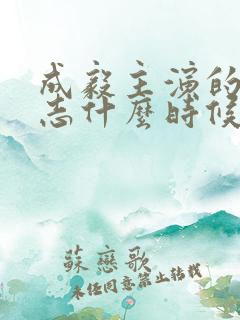 成毅主演的
志什麼時候
蘇戀歌
未经同意禁止转载